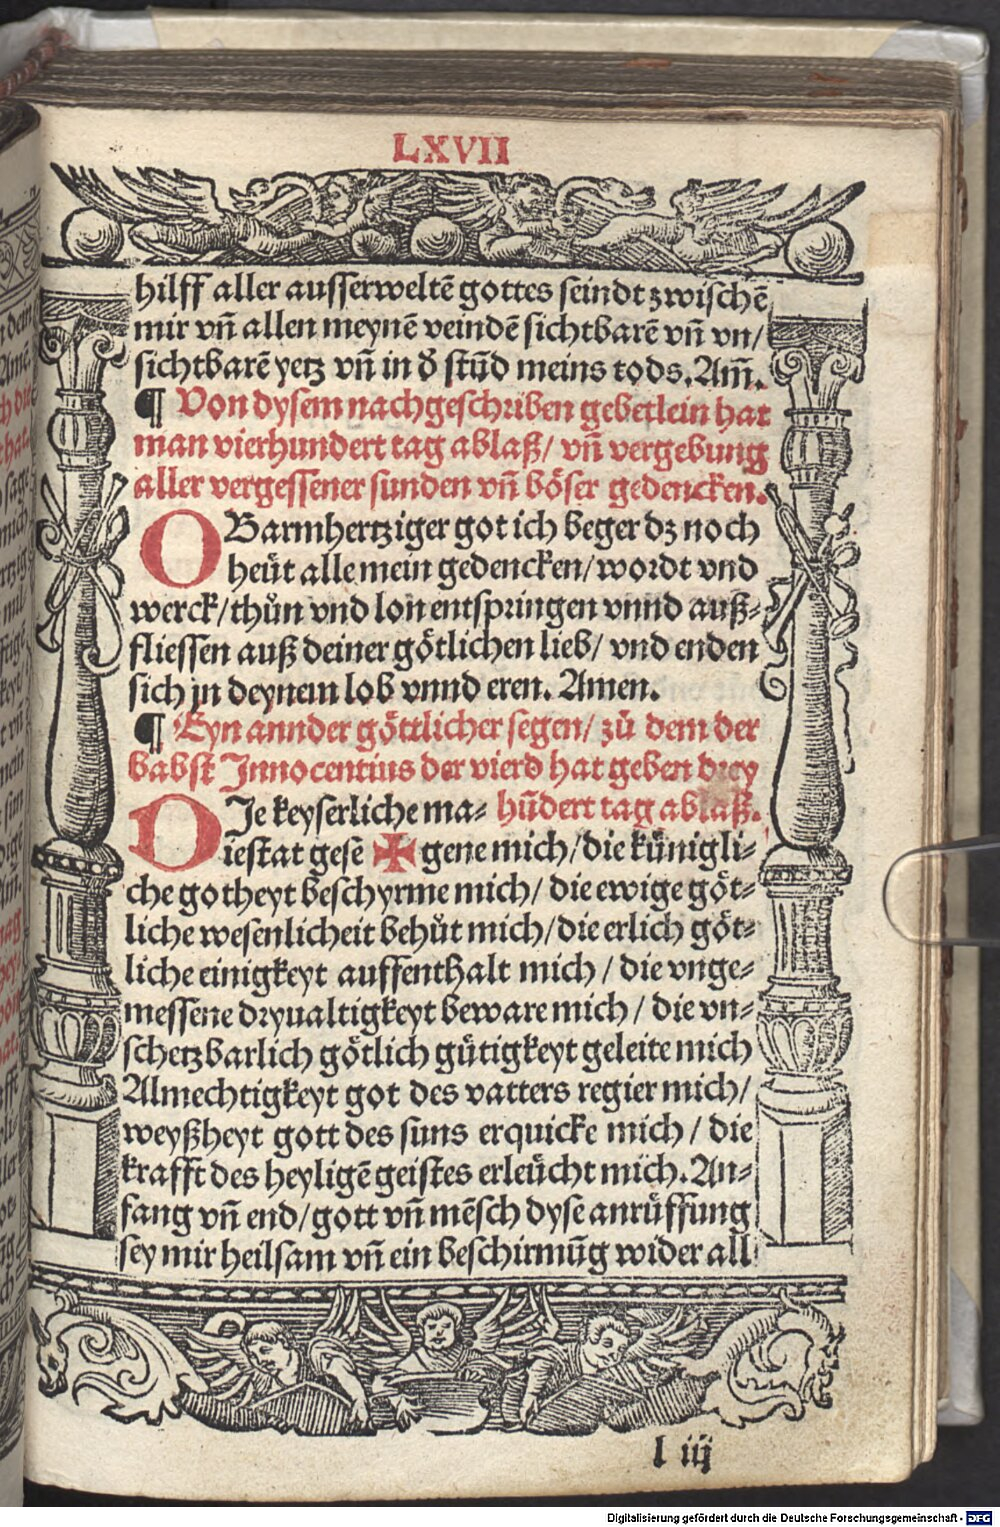 LXVII
hilff aller ausserweltē gottes seindt zwischē
mir vn̄ allen meynē veindē sichtbarē vn̄ vn/
sichtbarē yetz vn̄ in d̕ stūd meins tods. Am̄.
¶ Von dysem nachgeschriben gebetlein hat
man vierhundert tag ablaß/ vn̄ vergebung
aller vergessener sunden vn̄ böser gedencken.
O Barmhertziger got ich beger dz noch
heüt alle mein gedencken/wordt vnd
werck/thůn vnd lon entspringen vnnd auß⸗
fliessen auß deiner götlichen lieb/ vnd enden
sich jn deynem lob vnnd eren. Amen.
¶ Eyn annder göttlicher segen/ zů dem der
babst Innocentius der vierd hat geben drey
hūdert tag ablaß.
DIe keyserliche ma⸗
iestat gesē ✠ gene mich/die künigli⸗
che gotheyt beschyrme mich/ die ewige göt⸗
liche wesenlicheit behůt mich/die erlich göt⸗
liche einigkeyt auffenthalt mich / die vnge⸗
messene dryualtigkeyt beware mich / die vn⸗
schetzbarlich götlich gütigkeyt geleite mich
Almechtigkeyt got des vatters regier mich/
weyßheyt gott des suns erquicke mich / die
krafft des heyligē geistes erleücht mich. An⸗
fang vn̄ end/gott vn̄ mēsch dyse anrüffung
sey mir heilsam vn̄ ein beschirmūg wider all
l iij
Digitalisierung gefördert durch die Deutsche Forschungsgemeinschaft - DFG